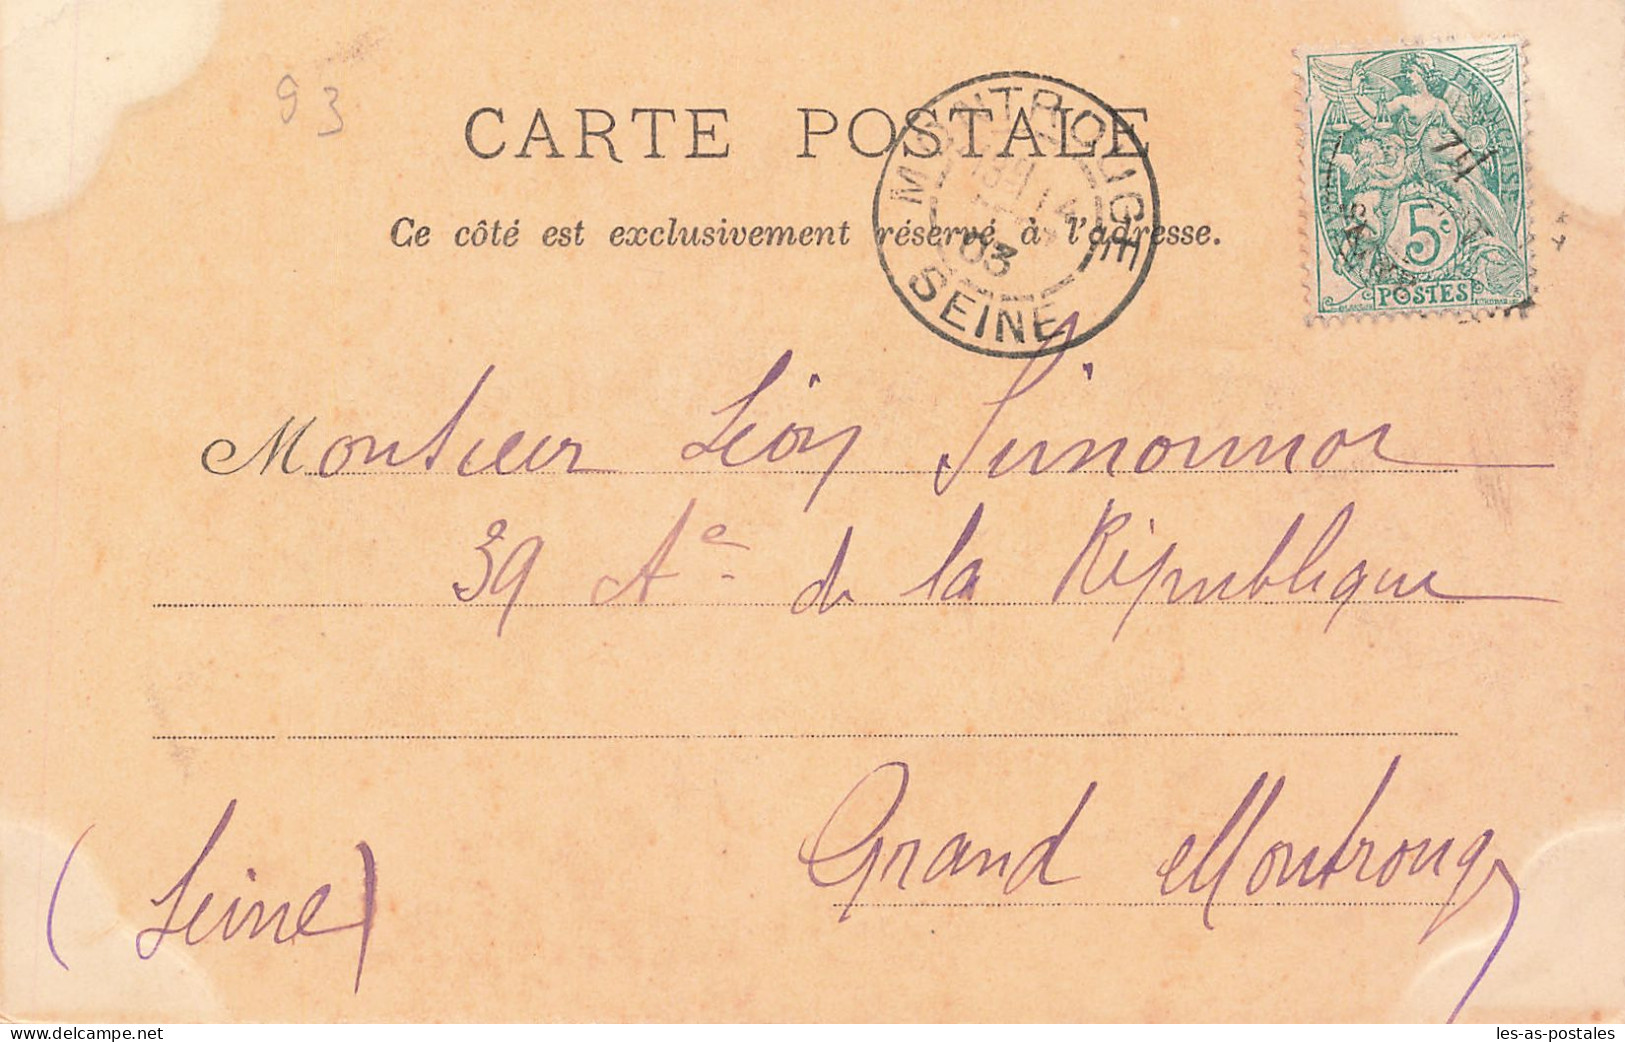 93
CARTE POSTALE
Ce côté est exclusivement réservé à l'adresse.
MONTROUGE
14
03
SEINE
FRANÇAISE
5c
POSTES
Monsieur Léon Simonnot
39 Ae de la République
Grand Montrouge
(Seine)
les-as-postales